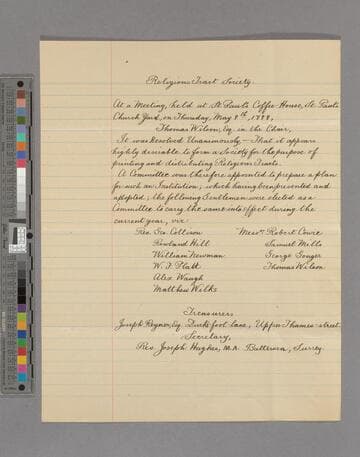 Religious Tract Society.
At a Meeting, held at St Paul's Coffee-House, St Paul's
Church Yard, on Thursday, May 9th, 1799,
Thomas Wilson, Esq. in the Chair,
It was Resolved Unanimously — That it appears
highly desirable to form a Society for the purpose of
printing and distributing Religious Tracts.
A Committee was therefore appointed to prepare a plan
for such an Institution; which having been presented and
adopted; the following Gentlemen were elected as a
Committee to carry the same into effect during the
current year, viz
Rev. Geo Collison Messrs Robert Cowie
Rowland Hill Samuel Mills
William Newman George
W. F. Platt Thomas Wilson
Alex Waugh
Matthew Wilks
Treasurer,
Joseph Reyner, Esq. Duck's foot lane, Upper Thames street.
Secretary,
Rev. Joseph Hughes, M.A. Battersea, Surrey.